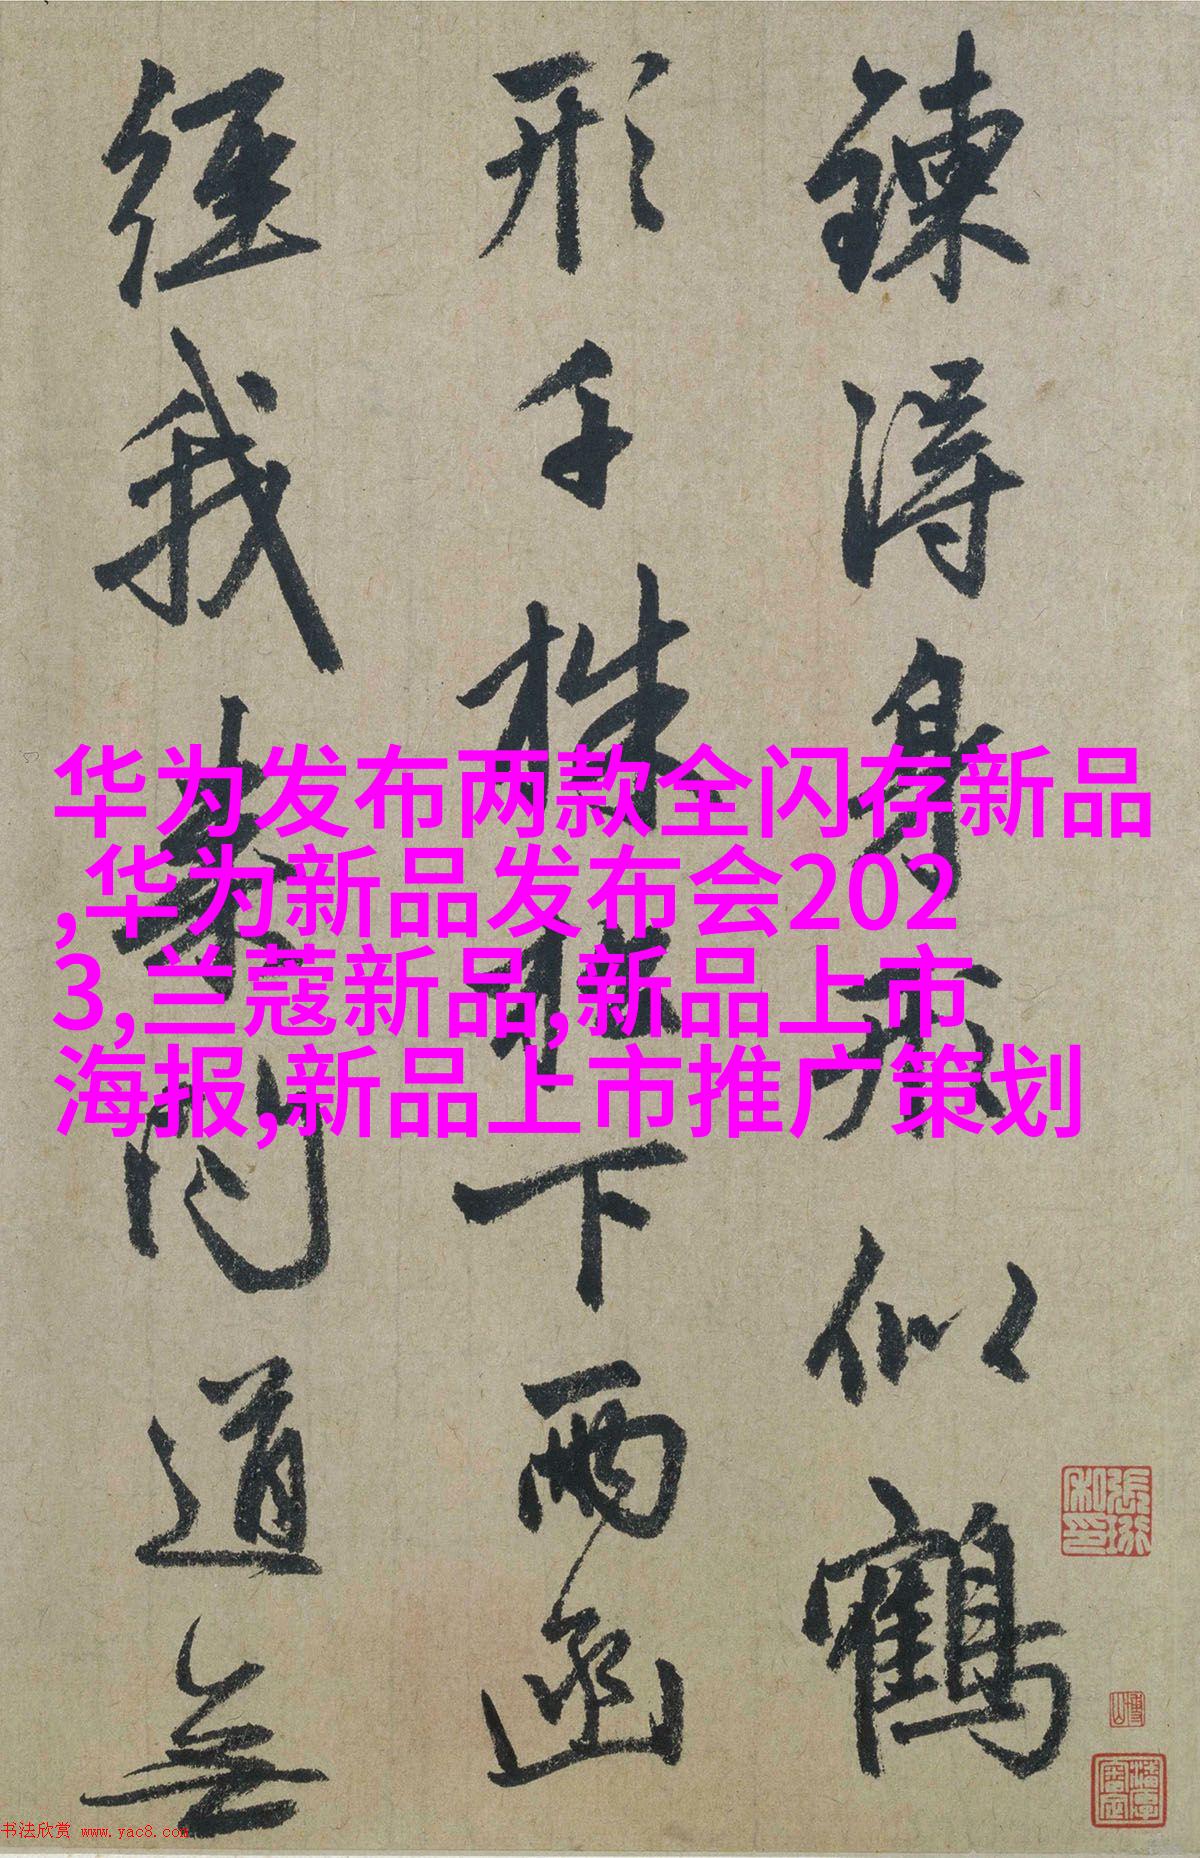 鍊得身形似鶴
形千株松下兩函
經我來問道無
华为发布两款全闪存新品
,华为新品发布会202
3,兰蔻新品,新品上市
海报,新品上市推广策划
书法欣赏 www.yac8.com